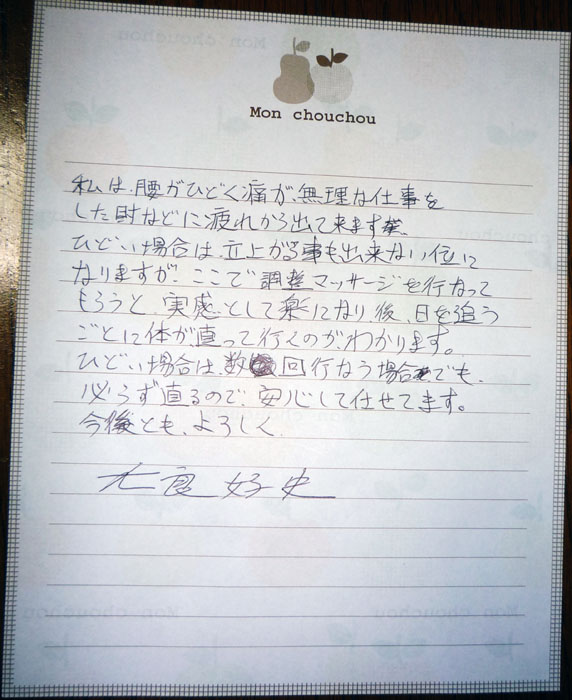 Mon chouchou
私は、腰がひどく痛が、無理な仕事を
した時などに疲れから出て来ます
ひどい場合は、立上がる事も出来ない位に
なりますが、ここで調整マッサージを行なって
もらうと、実感として楽になり、後、日を追う
ごとに体が直って行くのが、わかります。
ひどい場合は、数回行なう場合でも、
必らず直るので、安心して任せてます。
今後とも、よろしく、
好史